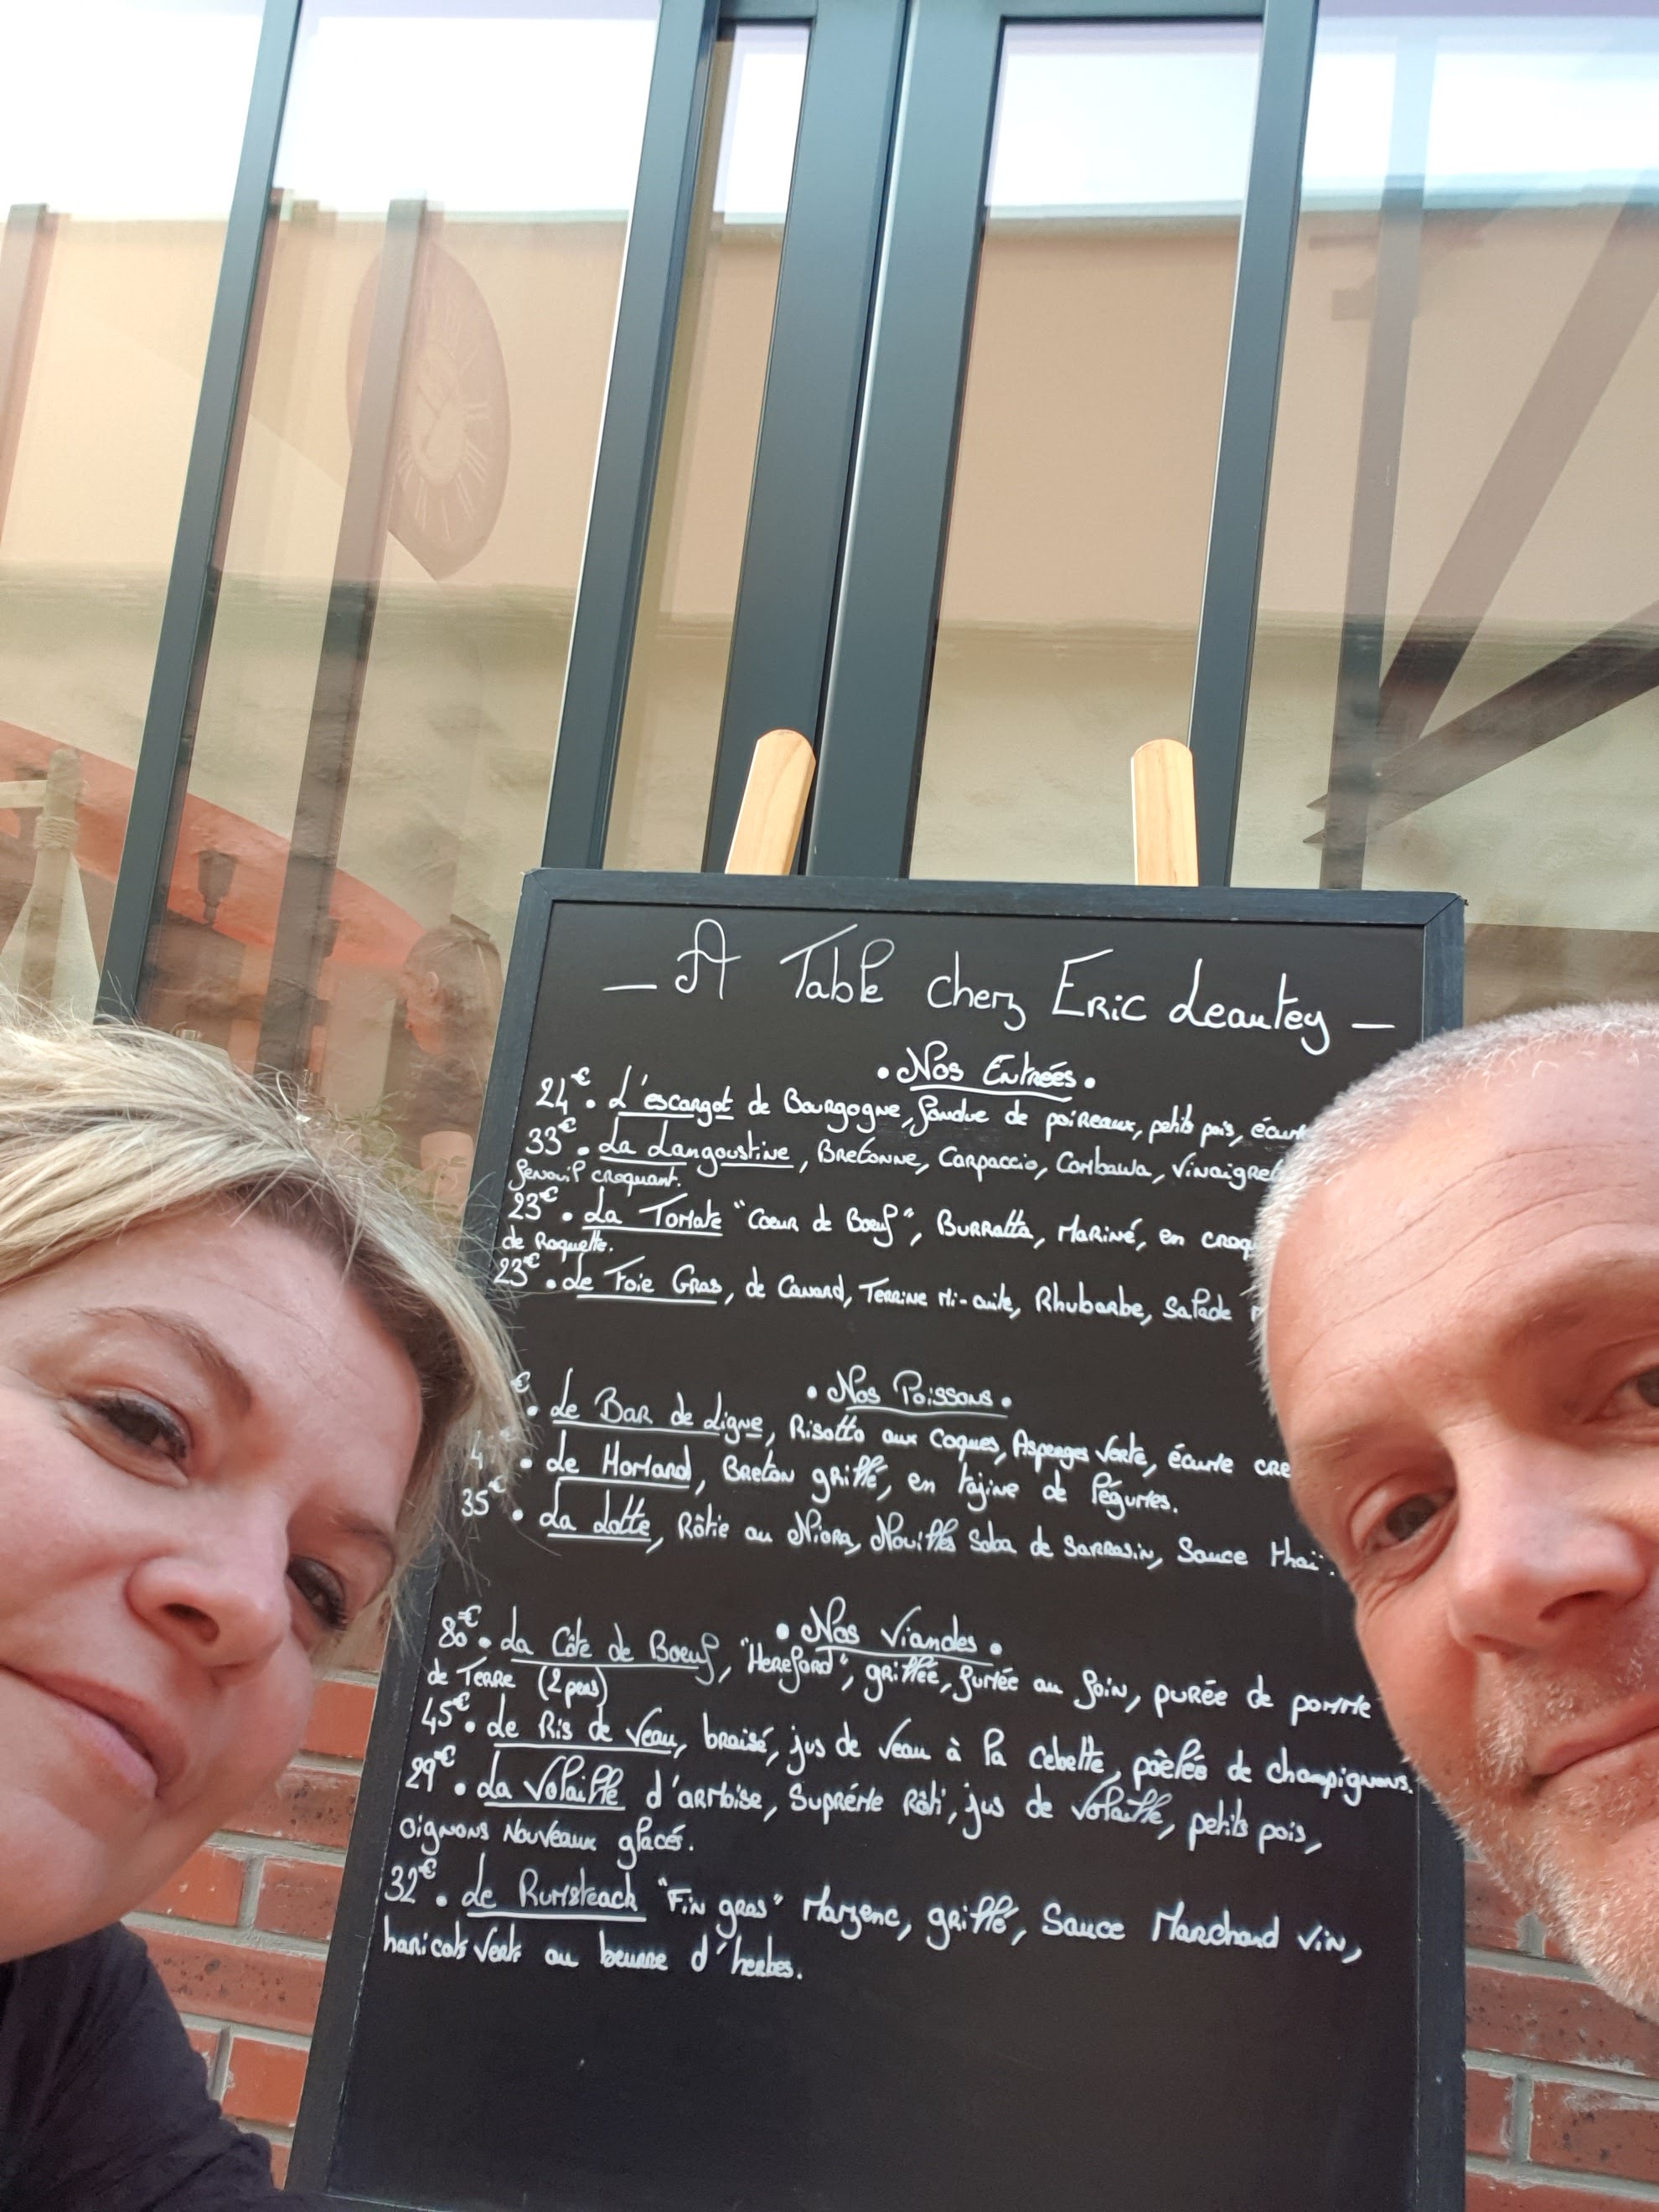 — A Table cherz Eric Leautey —
• Nos Entrées •
24€ • L'escargot de Bourgogne, fondue de poireaux, petits pois,
33€ • La Langoustine, Bretonne, Carpaccio, Combawa,
fenouil croquant.
23€ • La Tomate "Coeur de Boeuf", Burratta, Mariné, en
de Roquette.
23€ • Le Foie Gras, de Canard, Terrine Mi-cuite, Rhubarbe, Salade
• Nos Poissons •
€ • Le Bar de Ligne, Risotto aux Coques, Asperges Verte, écume
• Le Homard, Breton grillé, en tajine de légumes.
35€ • La Lotte, Rôtie au Niora, Nouilles Soba de Sarrasin, Sauce thaï.
• Nos Viandes •
80€ • La Côte de Boeuf, "Hereford", grillée, fumée au foin, purée de pomme
de Terre (2 pers)
45€ • Le Ris de Veau, braisé, jus de Veau à la Cebette, poêlés de champignons.
29€ • La Volaille d'armoise, Suprême Rôti, jus de Volaille, petits pois,
oignons Nouveaux glacés.
32€ • Le Rumsteack "Fin gras" Mezenc, grillé, Sauce Marchand Vin,
haricots Verts au beurre d'herbes.